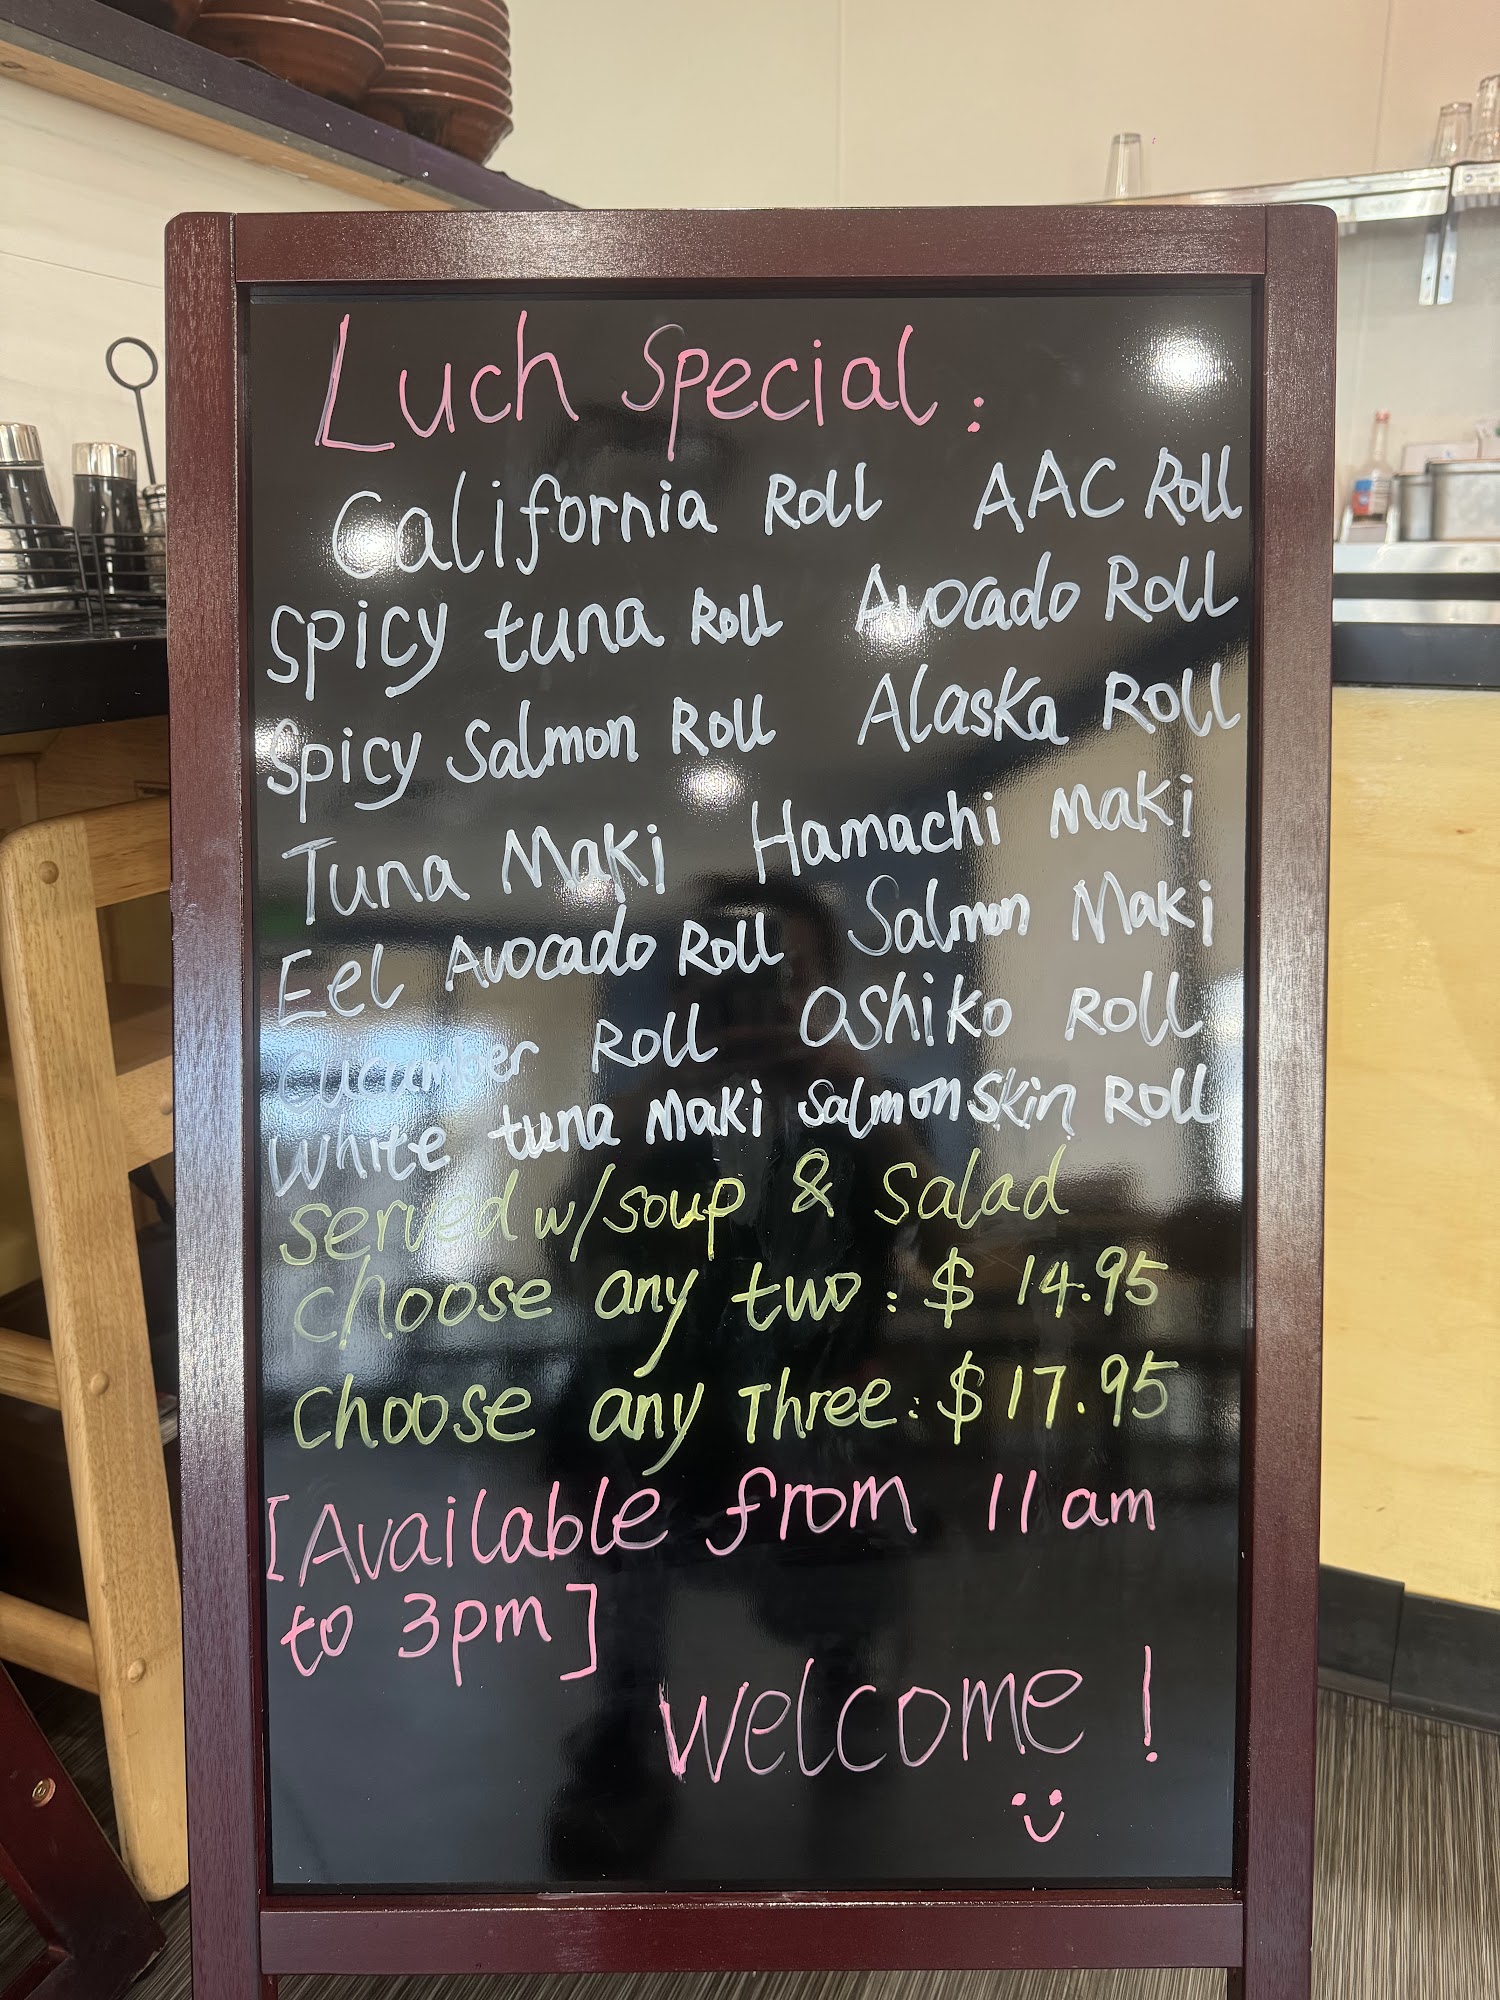 Luch Special:
California Roll AAC Roll
Spicy tuna Roll Avocado Roll
Spicy Salmon Roll Alaska Roll
Tuna Maki Hamachi Maki
Eel Avocado Roll Salmon Maki
Cucumber Roll Oshiko Roll
White tuna Maki Salmon Skin Roll
Served w/soup & Salad
Choose any two: $14.95
Choose any Three: $17.95
[Available from 11am
to 3pm]
Welcome!